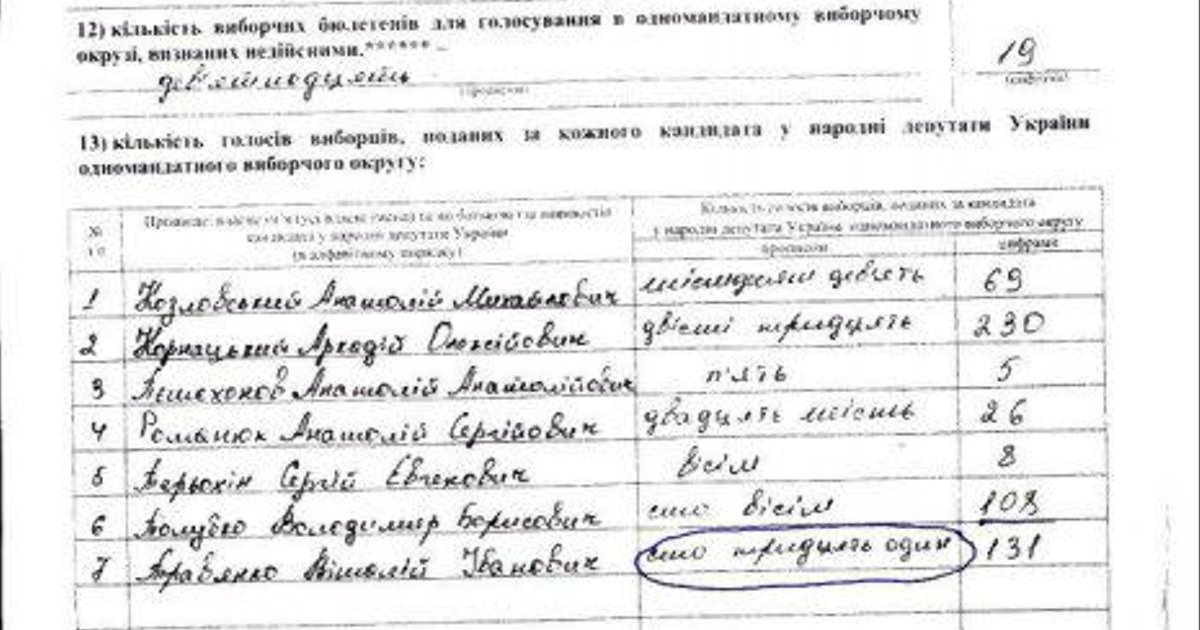 12) кількість виборчих бюлетенів для голосування в одномандатному виборчому
окрузі, визнаних недійсними.****** –
дев'ятнадцять
19
(прописом)
(цифрами)
13) кількість голосів виборців, поданих за кожного кандидата у народні депутати України
одномандатного виборчого округу:
№
Прізвище, власне ім'я (усі власні імена) та по батькові (за наявності)
кандидата у народні депутати України
(в алфавітному порядку)
Кількість голосів виборців, поданих за кандидата
у народні депутати України одномандатного виборчого округу
прописом цифрами
1 Козловський Анатолій Михайлович шістдесят дев'ять 69
2 Корнацький Аркадій Олексійович двісті тридцять 230
3 Анатолій Анатолійович п'ять 5
4 Романюк Анатолій Сергійович двадцять шість 26
5 Сергій Євгенович вісім 8
6 Володимир Борисович сто вісім 108
7 Травянко Віталій Іванович сто тридцять один 131